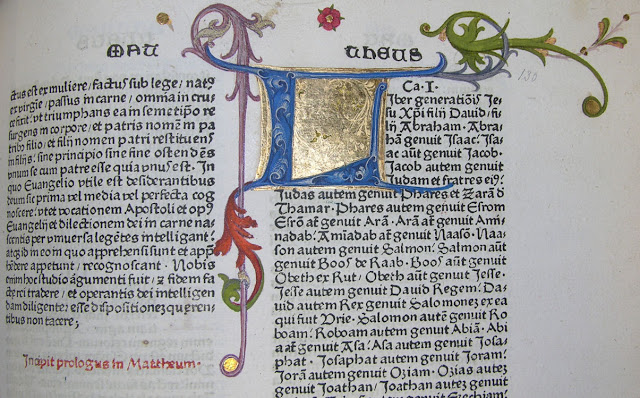 MAT THEUS
ctus est ex muliere/ factus sub lege/ natꝰ
ex virgīe/ passus in carne/ omnia in cru
ce fixit: vt triumphans ea in semetip̄o re
surgens in corpore/ et patris nomē in pa
tribꝰ filio/ et filij nomen patri restituens
in filijs: sine principio sine fine ostendēs
vnum se cum patre esse quia vnꝰ est· In
quo Euangelio vtile est desiderantibus
deum sic prima vel media vel perfecta cog
noscere: vt et vocationem Apostoli et opꝰ
Euangelij et dilectionem dei in carne na
scentis per vniuersa legētes intelligant:
atqꝫ id in eo in quo apprehensi sunt et app̄
hēdere appetunt/ recognoscant· Nobis
enim hoc studio argumēti fuit/ ⁊ fidem fa
cte rei tradere/ et operantis dei intelligen
dam diligenter esse dispositionez queren
tibus non tacere;
Incipit prologus in Mattheum·
130
Ca·I·
Liber generationis Je
su Xp̄i filij Dauid/ fi
lij Abraham· Abra
hā genuit Isaac· Isa
ac aūt genuit Jacob·
Jacob autem genuit
Judam et fratres eiꝰ:
Judas autem genuit Phares et Zarā ð
Thamar· Phares autem genuit Esrom
Esrō aūt genuit Arā· Arā aūt genuit Ami
nadab: Amīadab aūt genuit Naasō· Naas
son autem genuit Salmon· Salmō aūt
genuit Boos de Raab· Boos aūt genuit
Obeth ex Rut/ Obeth aūt genuit Jesse·
Jesse autem genuit Dauid Regem· Da
uid autem Rex genuit Salomonez ex ea
qui fuit Vrie· Salomon autē genuit Ro
boam· Roboam autem genuit Abiā· Abi
a aūt genuit Asa· Asa autem genuit Josa
phat· Josaphat autem genuit Joram:
Jorā autem genuit Oziam· Ozias autez
genuit Joathan/ Joathan autez genuit